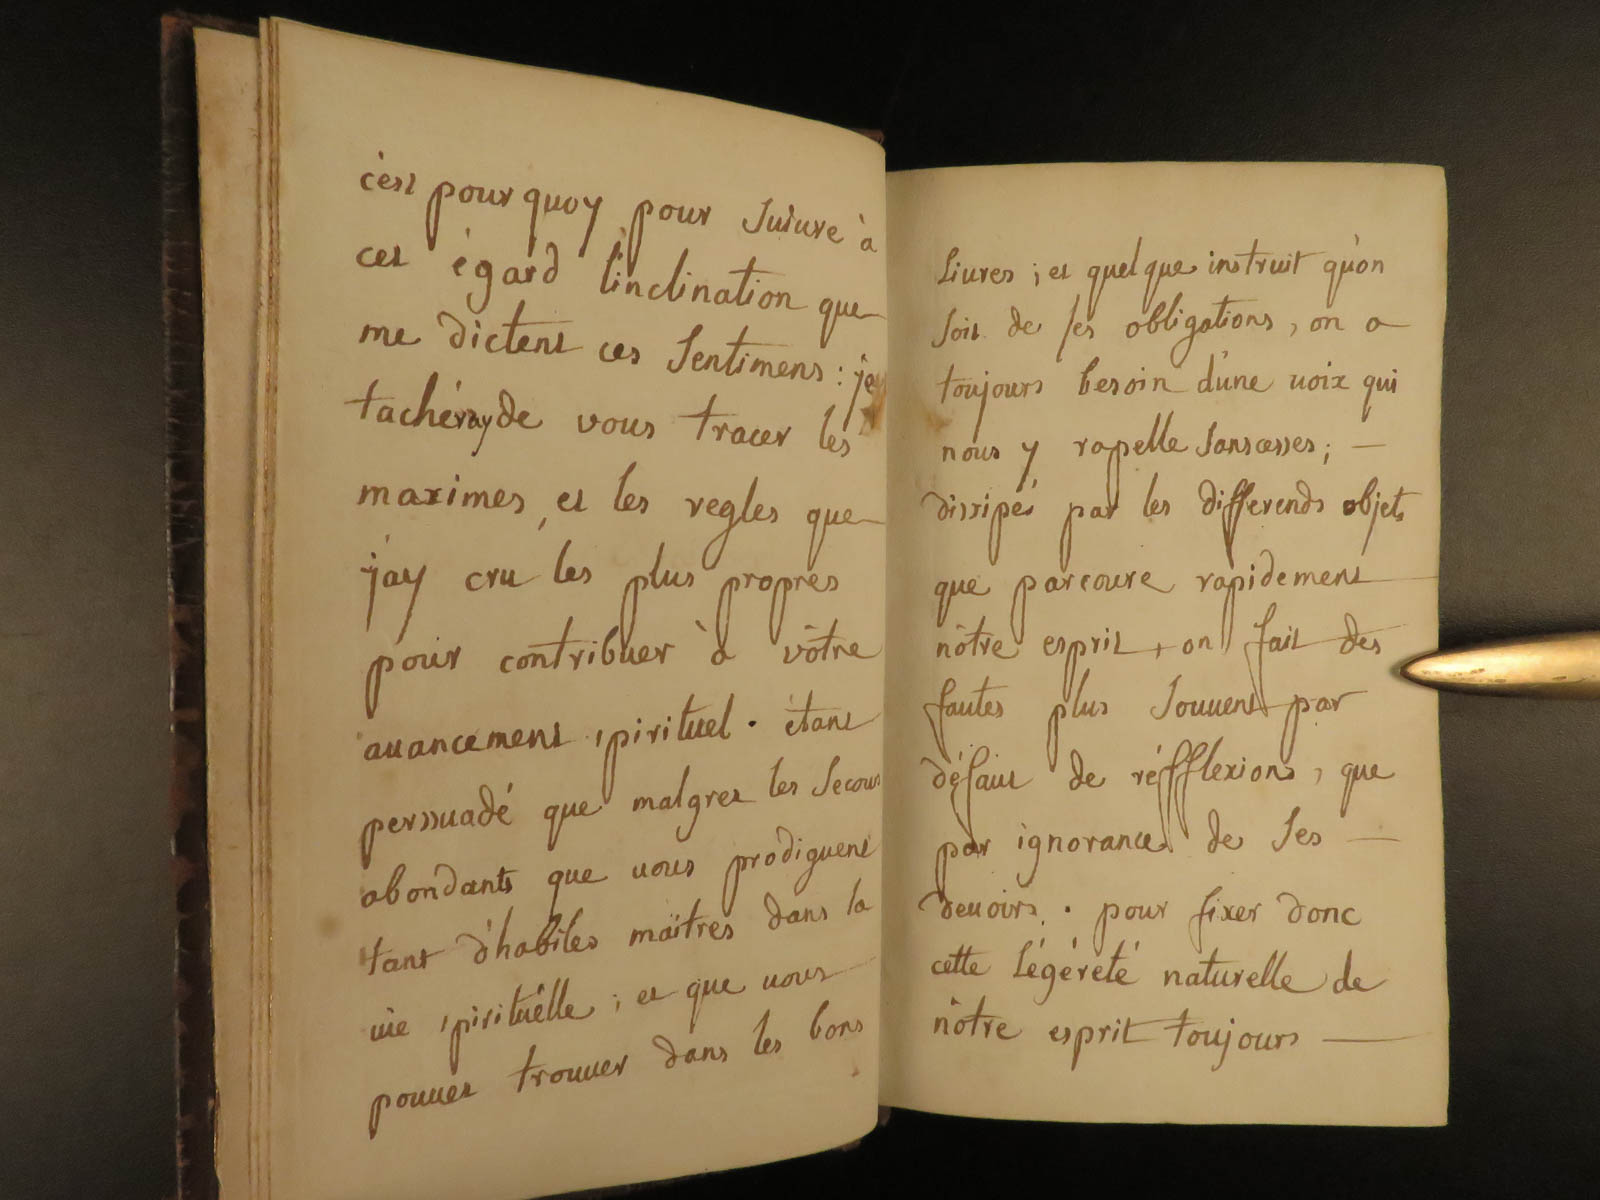 c'est pourquoy pour suivre à
cet égard l'inclination que
me dictent ces sentimens : je
tacheray de vous tracer les
maximes, et les regles que
j'ay cru les plus propres
pour contribuer à vôtre
auancement spirituel. étant
perssuadé que malgrez les secours
abondants que uous prodiguent
tant d'habiles maîtres dans la
uie spirituélle ; et que uous
pouuez trouuer dans les bons
liures ; et quelque instruit qu'on
soit de ses obligations, on a
toujours besoin d'une uoix qui
nous y rapelle sanscesses ; —
dissipés par les differends objets
que parcoure rapidement
nôtre esprit, on fait des
fautes plus souuent par
défaut de réfflexions, que
par ignorance de ses —
deuoirs. pour fixer donc
cette légéreté naturelle de
nôtre esprit toujours —